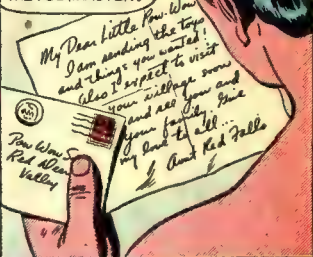 My Dear Little Pow-Wow
I am sending the toys
and things you wanted!
Also I expect to visit
your village soon
and see you and
your family. Give
my love to all...
Aunt Red Falls
Pow Wow S
Red Deer
Valley